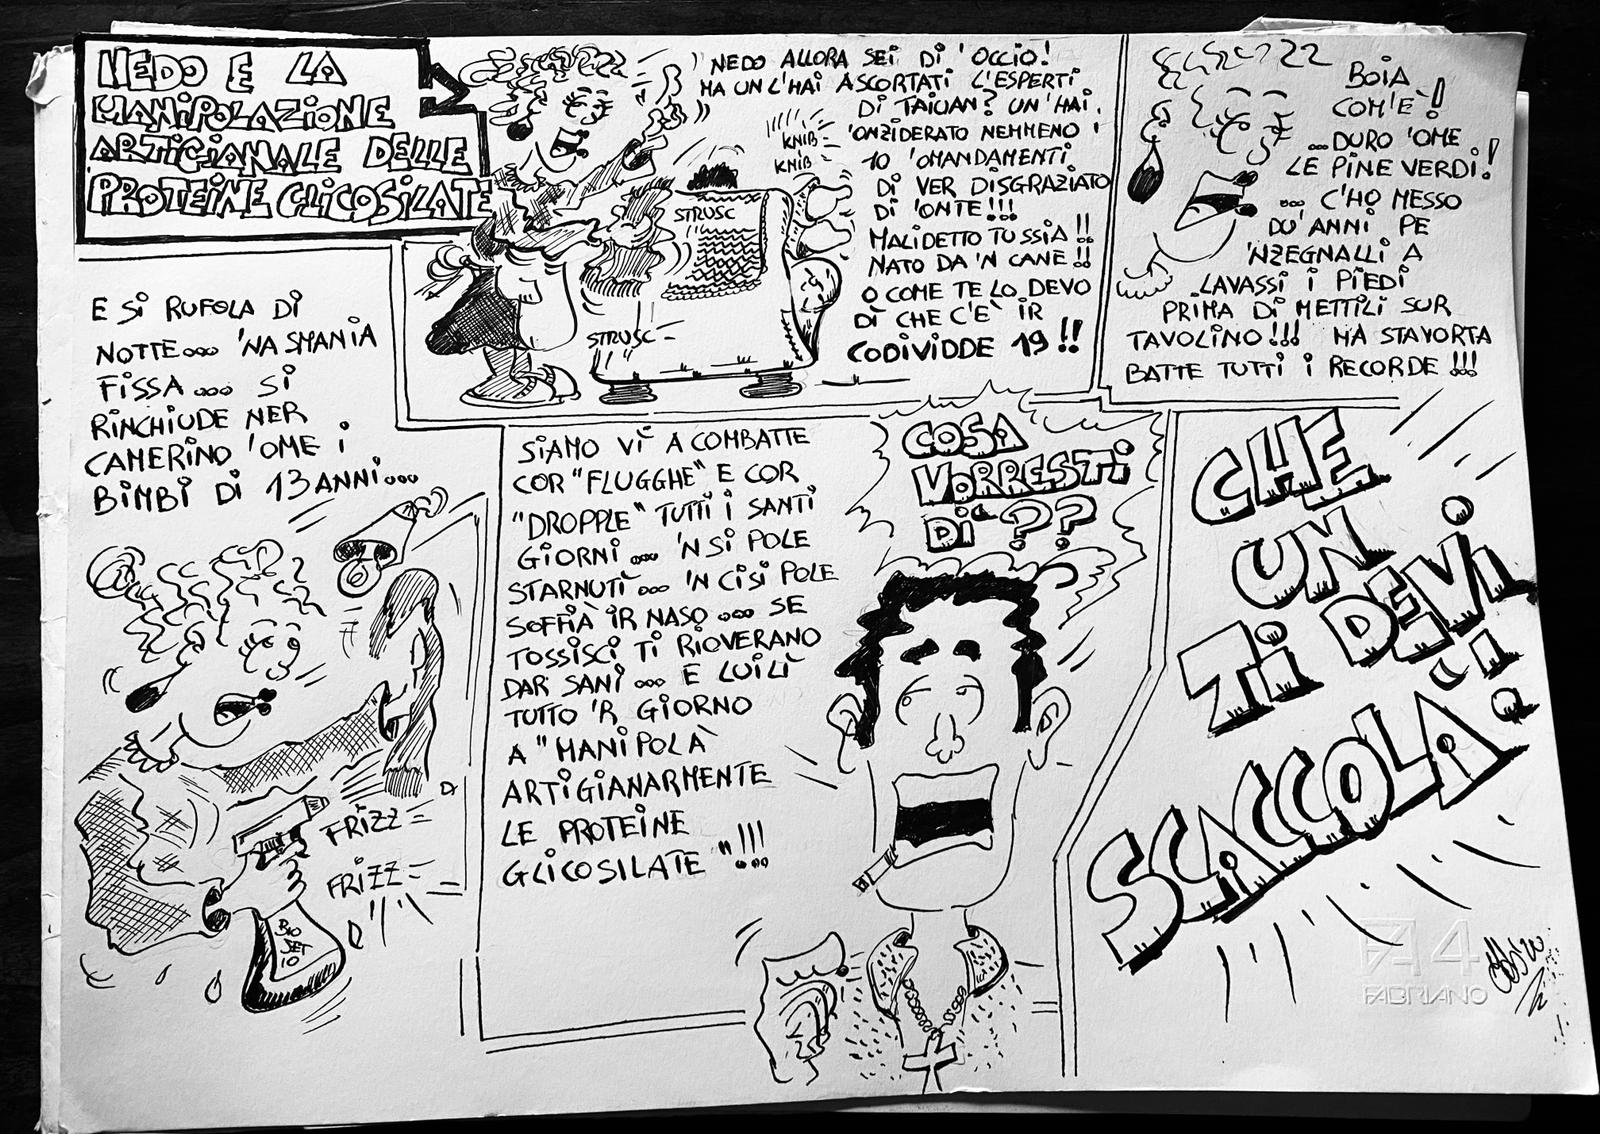 NEDO E LA
MANIPOLAZIONE
ARTIGIANALE DELLE
PROTEINE GLICOSILATE
NEDO ALLORA SEI DI 'OCCIO!
MA UN L'HAI ASCORTATI L'ESPERTI
DI TAIUAN? UN'HAI
'ONZIDERATO NEMMENO I
10 'OMANDAMENTI
DI VER DISGRAZIATO
DI 'ONTE!!!
MALIDETTO TU SSIA!!
NATO DA 'N CANE!!
O COME TE LO DEVO
DÌ CHE C'È IR
CODIVIDDE 19!!
KNIB
KNIB
STRUSC
STRUSC
BOIA
COM'È!
...DURO 'OME
LE PINE VERDI!
... C'HO MESSO
DU'ANNI PE
'NZEGNALLI A
LAVASSI I PIEDI
PRIMA DI METTILI SUR
TAVOLINO!!! MA STAVORTA
BATTE TUTTI I RECORDE!!!
E SI RUFOLA DI
NOTTE... 'NA SMANIA
FISSA... SI
RINCHIUDE NER
CAMERINO 'OME I
BIMBI DI 13 ANNI...
FRIZZ
FRIZZ
BIO
SET
10
SIAMO VÌ A COMBATTE
COR "FLUGGHE" E COR
"DROPPLE" TUTTI I SANTI
GIORNI... 'N SI POLE
STARNUTÌ... 'N CI SI POLE
SOFFIÀ IR NASO... SE
TOSSISCI TI RIOVERANO
DAR SANI... E LUILÌ
TUTTO 'R GIORNO
A "MANIPOLÀ
ARTIGIANARMENTE
LE PROTEINE
GLICOSILATE"!!!
COSA
VORRESTI
DI'??
CHE
UN
TI DEVI
SCACCOLÀ!!
FA 4
FABRIANO